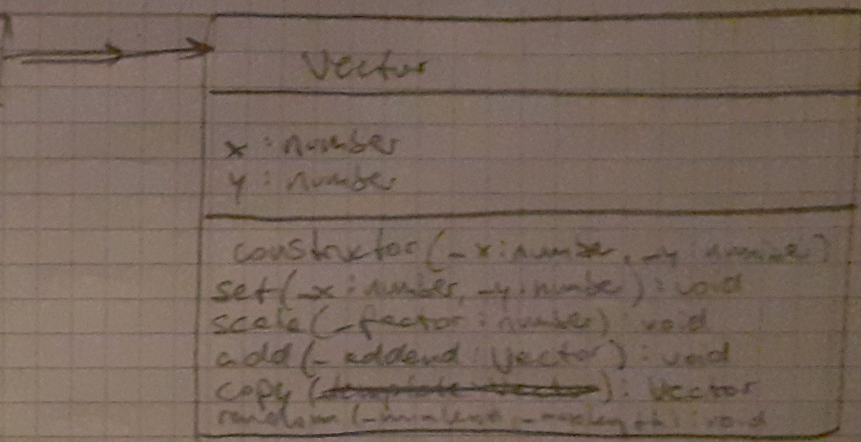 Vector
x : number
y : number
constructor(_x : number, _y : number)
set(_x : number, _y : number) : void
scale(_factor : number) : void
add(_addend : Vector) : void
copy (template : Vector) : Vector
random (_minLength, _maxLength) : void